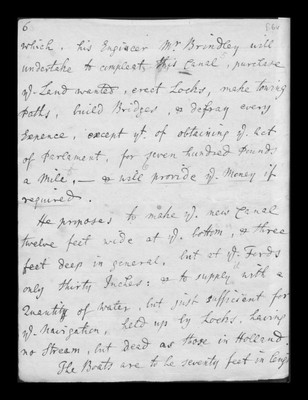 6
which. his Engineer Mr Brindley will
undertake to compleat this Canal, purchase
ye. Land wanted, erect Locks, make towing
paths, build Bridges, & defray every
Expence, except yt. of obtaining ye. Act
of Parlament, for seven hundred Pounds
a Mile, — & will provide ye. Money if
required.
He proposes to make ye. new Canal
twelve feet wide at ye. bottom, & three
feet deep in general, but at ye. Fords
only thirty Inches: & to supply with a
Quantity of water, but just sufficient for
ye. Navigation, held up by Locks, having
no Stream, but Dead as those in Holland.
The Boats are to be seventy feet in length